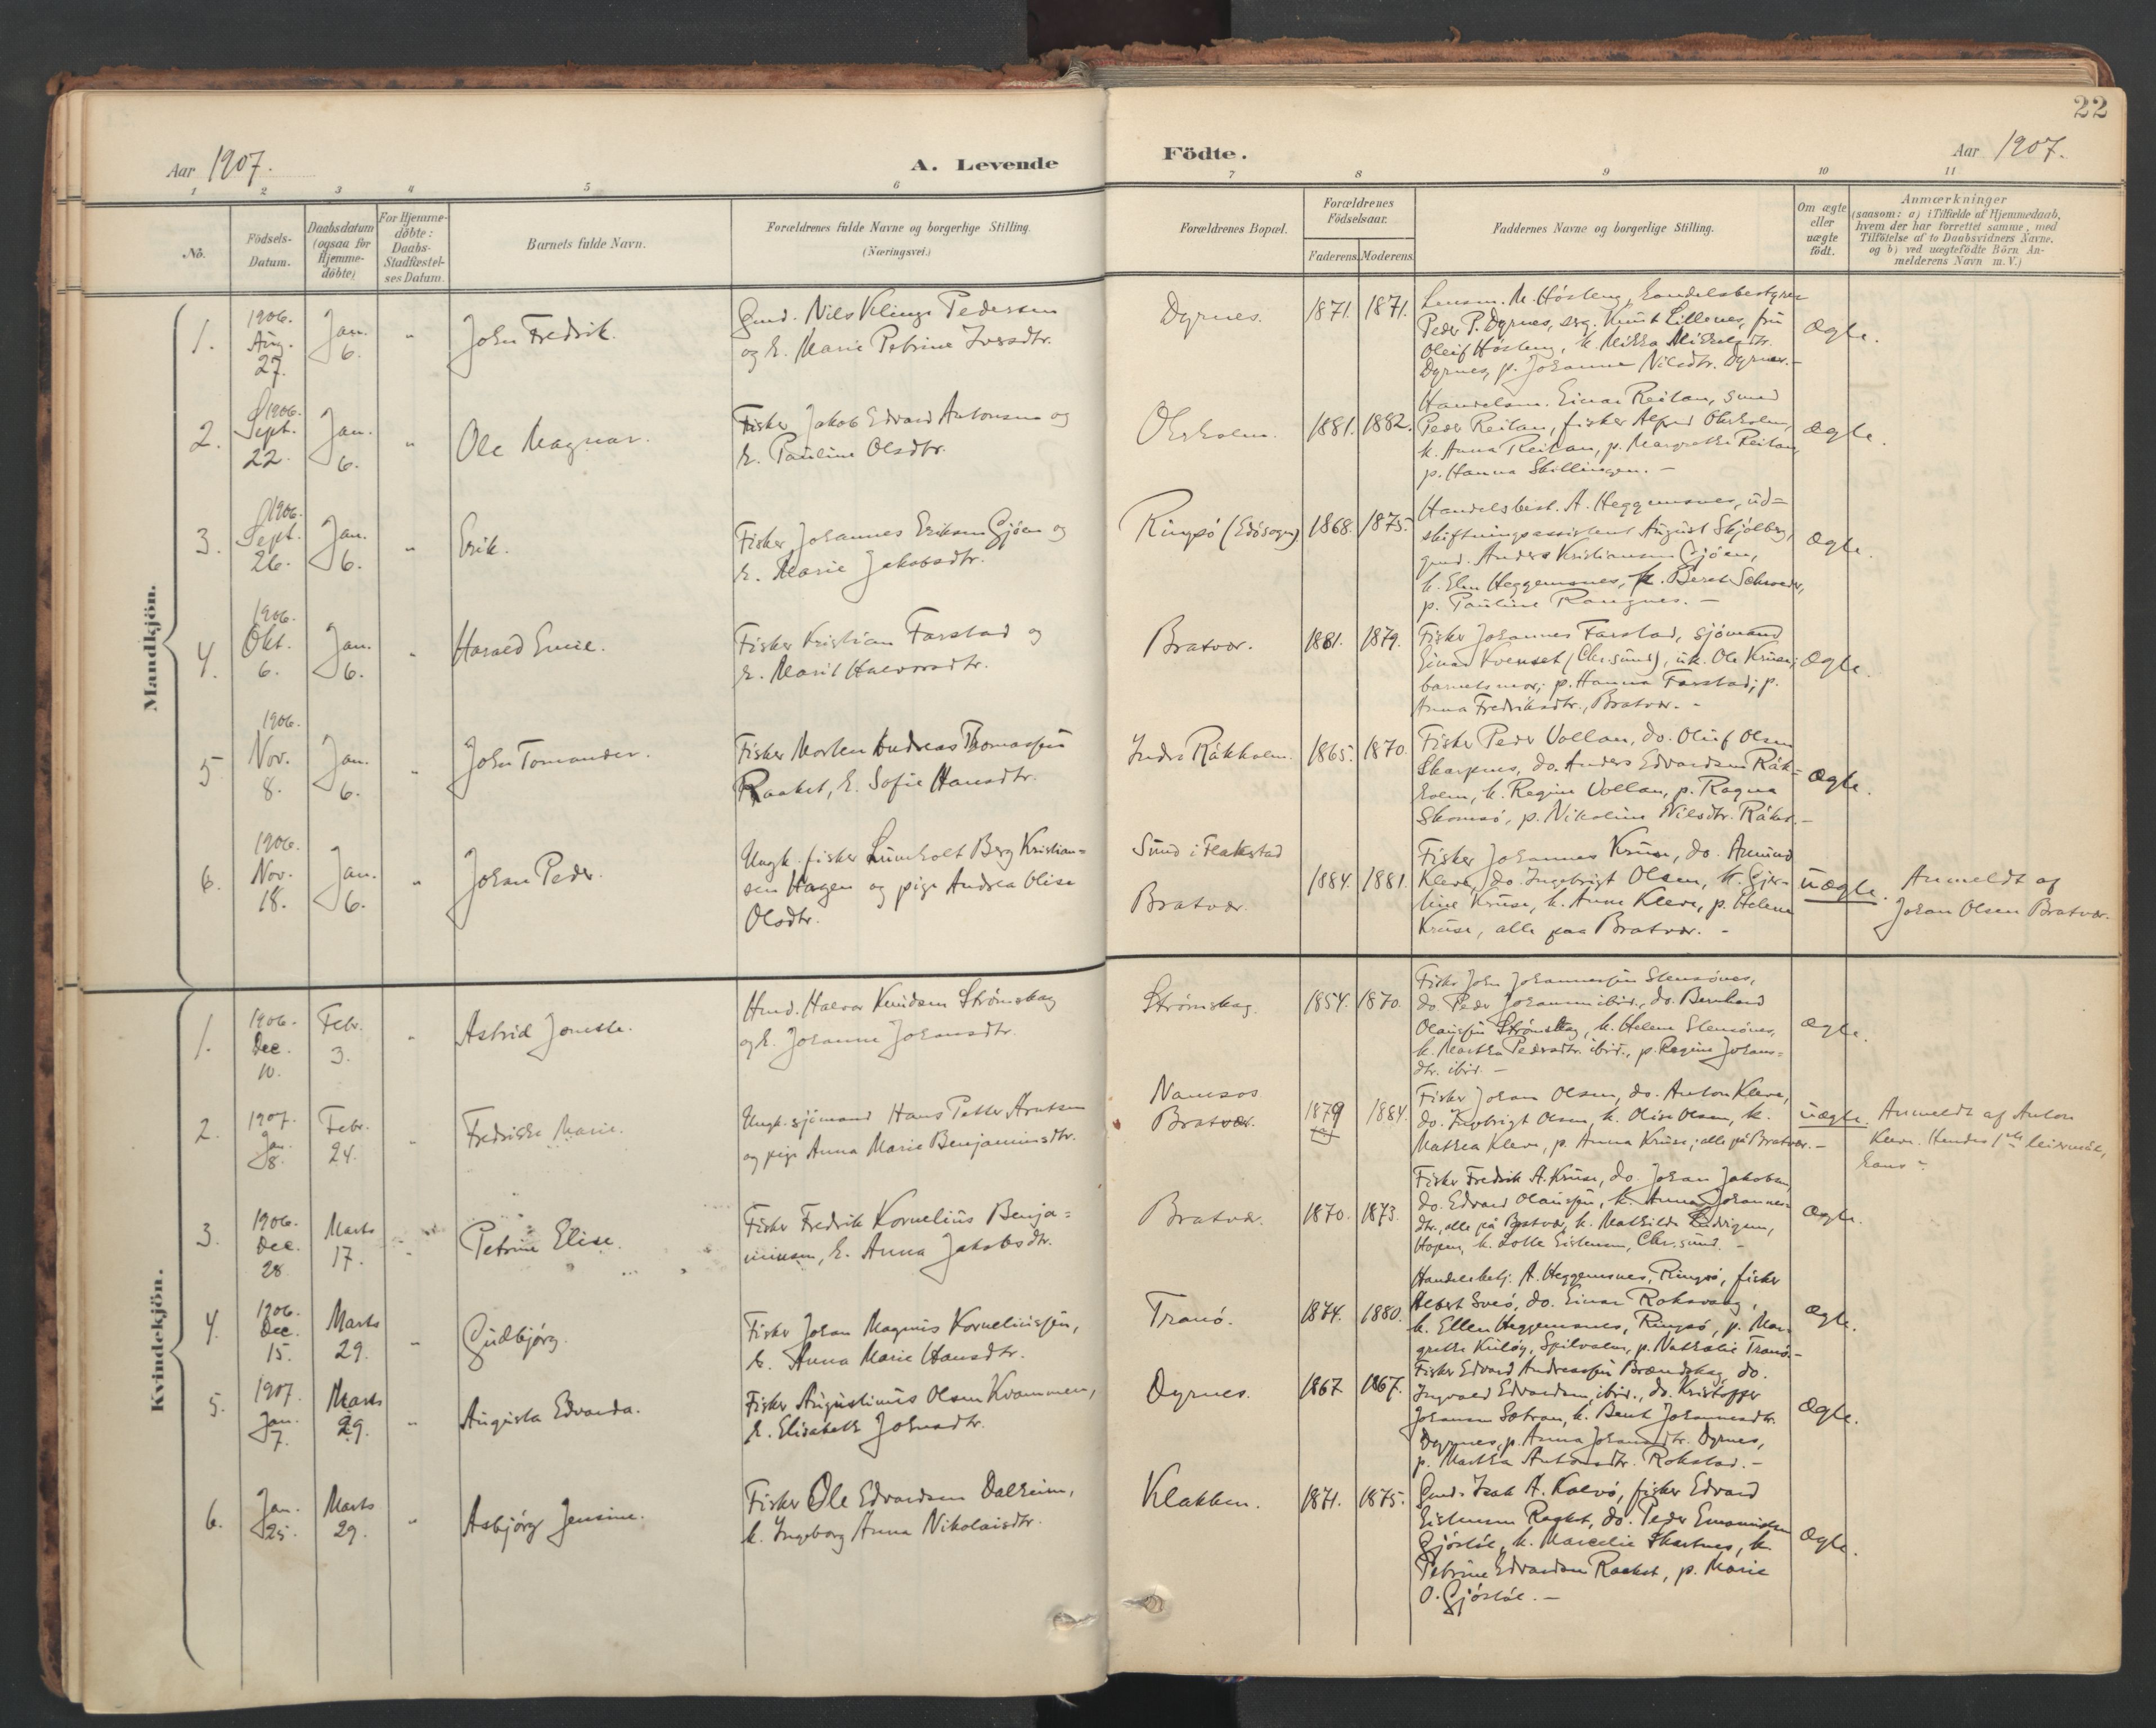 22
Aar 1907.
A. Levende
Födte.
Aar 1907.
1 2 3 4 5 6 7 8 9 10 11
No.
Födsels-
Datum.
Daabsdatum
(ogsaa för
Hjemme-
döbte)
For Hjemme-
döbte:
Daabs-
Stadfæstel-
ses Datum.
Barnets fulde Navn.
Forældrenes fulde Navne og borgerlige Stilling.
(Næringsvei.)
Forældrenes Bopæl.
Forældrenes
Födselsaar.
Faderens. Moderens.
Faddernes Navne og borgerlige Stilling.
Om ægte
eller
uægte
födt.
Anmærkninger
(saasom: a) i Tilfælde af Hjemmedaab,
hvem der har forrettet samme, med
Tilföielse af to Daabsvidners Navne.
og b) ved uægtefödte Börn An-
melderens Navn m. V.)
Mandkjön.
1.
1906.
Aug.
27.
Jan.
6.
"
John Fredrik.
Gmd. Nils Kling Pedersen
og h. Marie Petrine Iversdtr.
Dyrnes.
1871. 1871.
Peder P. Dyrnes, Knut Lillenes, fru
Dyrnes, p. Johanna Nilsdtr. Dyrnes. -
Ægte.
2.
1906.
Sept.
22.
Jan.
6.
"
Ole Magnar.
Fisker Jakob Edvard Antonsen og
h. Pauline Olsdtr.
Odsholm.
1881. 1882.
Handelsm. Einar Reitan, smed
Peder Reitan, fisker Alfred
k. Anna Reitan, p. Margrethe Reitan,
p. Hanna Skillingen. -
Ægte.
3.
1906.
Sept.
26.
Jan.
6.
"
Erik.
Fisker Johannes Eriksen Gjöen og
h. Marie Jakobsdtr.
Ringsö (Edö sogn)
1868. 1875.
Handelsbest. A. Heggemsnes, ud=
skiftningsassistent August Skjölberg,
gmd. Anders Kristiansen Gjöen,
k. Elen Heggemsnes, k. Beret Schrøder,
p. Pauline Rangnes. -
Ægte.
4.
1906.
Okt.
6.
Jan.
6.
"
Harald Emil.
Fisker Kristian Farstad og
h. Marit Halvorsdtr.
Bratvær.
1881. 1879.
Fisker Johannes Farstad, sjömand
Einar Kvenset (Chr.sund), uk. Ole Kruse;
barnets mor; p. Hanna Farstad; p.
Anna Fredriksdtr., Bratvær. -
Ægte.
5
1906.
Nov.
8.
Jan.
6.
"
John Tomander.
Fisker Morten Andreas Thomassen
Raaket, h. Sofie Hansdtr.
Indre Råkholm.
1865. 1870.
Fisker Peder Vollan, do. Oluf Olsen
Skarpnes, do. Anders Edvardsen Råk=
holm, k. Regine Vollan, p. Ragna
Skomsö, p. Nikoline Nilsdtr. Råket. -
Ægte.
6.
1906.
Nov.
18.
Jan.
6.
"
Johan Peder.
Ungk. fisker Lumholt Berg Kristian=
sen Hagen og pige Andrea Olise
Olsdtr.
Sund i Flakstad
Bratvær.
1884. 1881.
Fisker Johannes Kruse, do. Amund
Kleve, do. Ingebrigt Olsen, k. Gjer-
tine Kruse, k. Anne Kleve, p. Helene
Kruse, alle paa Bratvær. -
Uægte.
Anmeldt af
Johan Olsen Bratvær.
Kvindekjön.
1.
1906.
Dec.
10.
Febr.
3.
"
Astrid Jonette.
Hmd. Halvor Knudsen Strömskag
og h. Johanna Johansdtr.
Strömskag.
1854. 1870.
Fisker John Johannessen Stensönes,
do. Peder Johannsen ibid., do. Bernhard
Olaussen Strömskag, k. Helene Stensönes,
k. Martha Pedersdtr. ibid., p. Regine Johans=
dtr. ibid. -
Ægte.
2.
1907.
Jan.
8.
Febr.
24.
"
Fredrikke Marie.
Ungk. sjömand Hans Petter Arntsen
og pige Anna Marie Benjaminsdtr.
Namsos
Bratvær.
1879 1884.
Fisker Johan Olsen, do. Anton Kleve,
do. Ingebrigt Olsen, k. Olise Olsen, k.
Mathea Kleve, p. Anna Kruse; alle på Bratvær. -
Uægte.
Anmeldt af Anton
Kleve. Hendes 1ste leiermål,
hans -
3.
1906.
Dec.
28.
Marts
17.
"
Petrine Elise.
Fisker Fredrik Kornelius Benja=
minsen, h. Anna Jakobsdtr.
Bratvær.
1870. 1873.
Fisker Fredrik A. Kruse, do. Johan Jakobsen,
do. Edvard Olaussen, k. Anna Johannes-
dtr., alle på Bratvær, k. Mathilde Ludvigsen,
Hopen, k. Lotte Eistensen, Chr.sund. -
Ægte.
4.
1906.
Dec.
15.
Marts
29.
"
Gudbjörg.
Fisker Johan Magnus Korneliussen,
h. Anna Marie Hansdtr.
Tranö.
1874. 1880.
Handelsbetj. A. Heggemsnes, Ringsö, fisker
Albert Sveö, do. Einar Roksvaag,
k. Ellen Heggemsnes, Ringsö, p. Mar-
grethe Kulöy, Spilvalen, p. Nathalie Tranö. -
Ægte.
5.
1907
Jan.
7.
Marts
29.
"
Augusta Edvarda.
Fisker Augustinus Olsen Kvammen,
h. Elisabeth Johnsdtr.
Dyrnes.
1867. 1867.
Fisker Edvard Andreassen Brændskag, do.
Ingvald Edvardsen, ibid., do. Kristoffer
Johansen Sætran, k. Berit Johannesdtr.
Dyrnes, p. Anna Johansdtr. Dyrnes,
p. Martha Antonsdtr. Rokstad. -
Ægte.
6.
Jan.
25.
Marts
29.
"
Asbjörg Jensine.
Fisker Ole Edvardsen Dalheim,
h. Ingeborg Anna Nikolaisdtr.
Klakken.
1871. 1875.
Gmd. Isak A. Kalvö, fisker Edvard
Eistensen Raaket, do. Peder Emanuelsen
Gjöstöl, k. Marcelie Skartnes, k.
Petrine Edvardsen Raaket, p. Marie
O. Gjöstöl. -
Ægte.